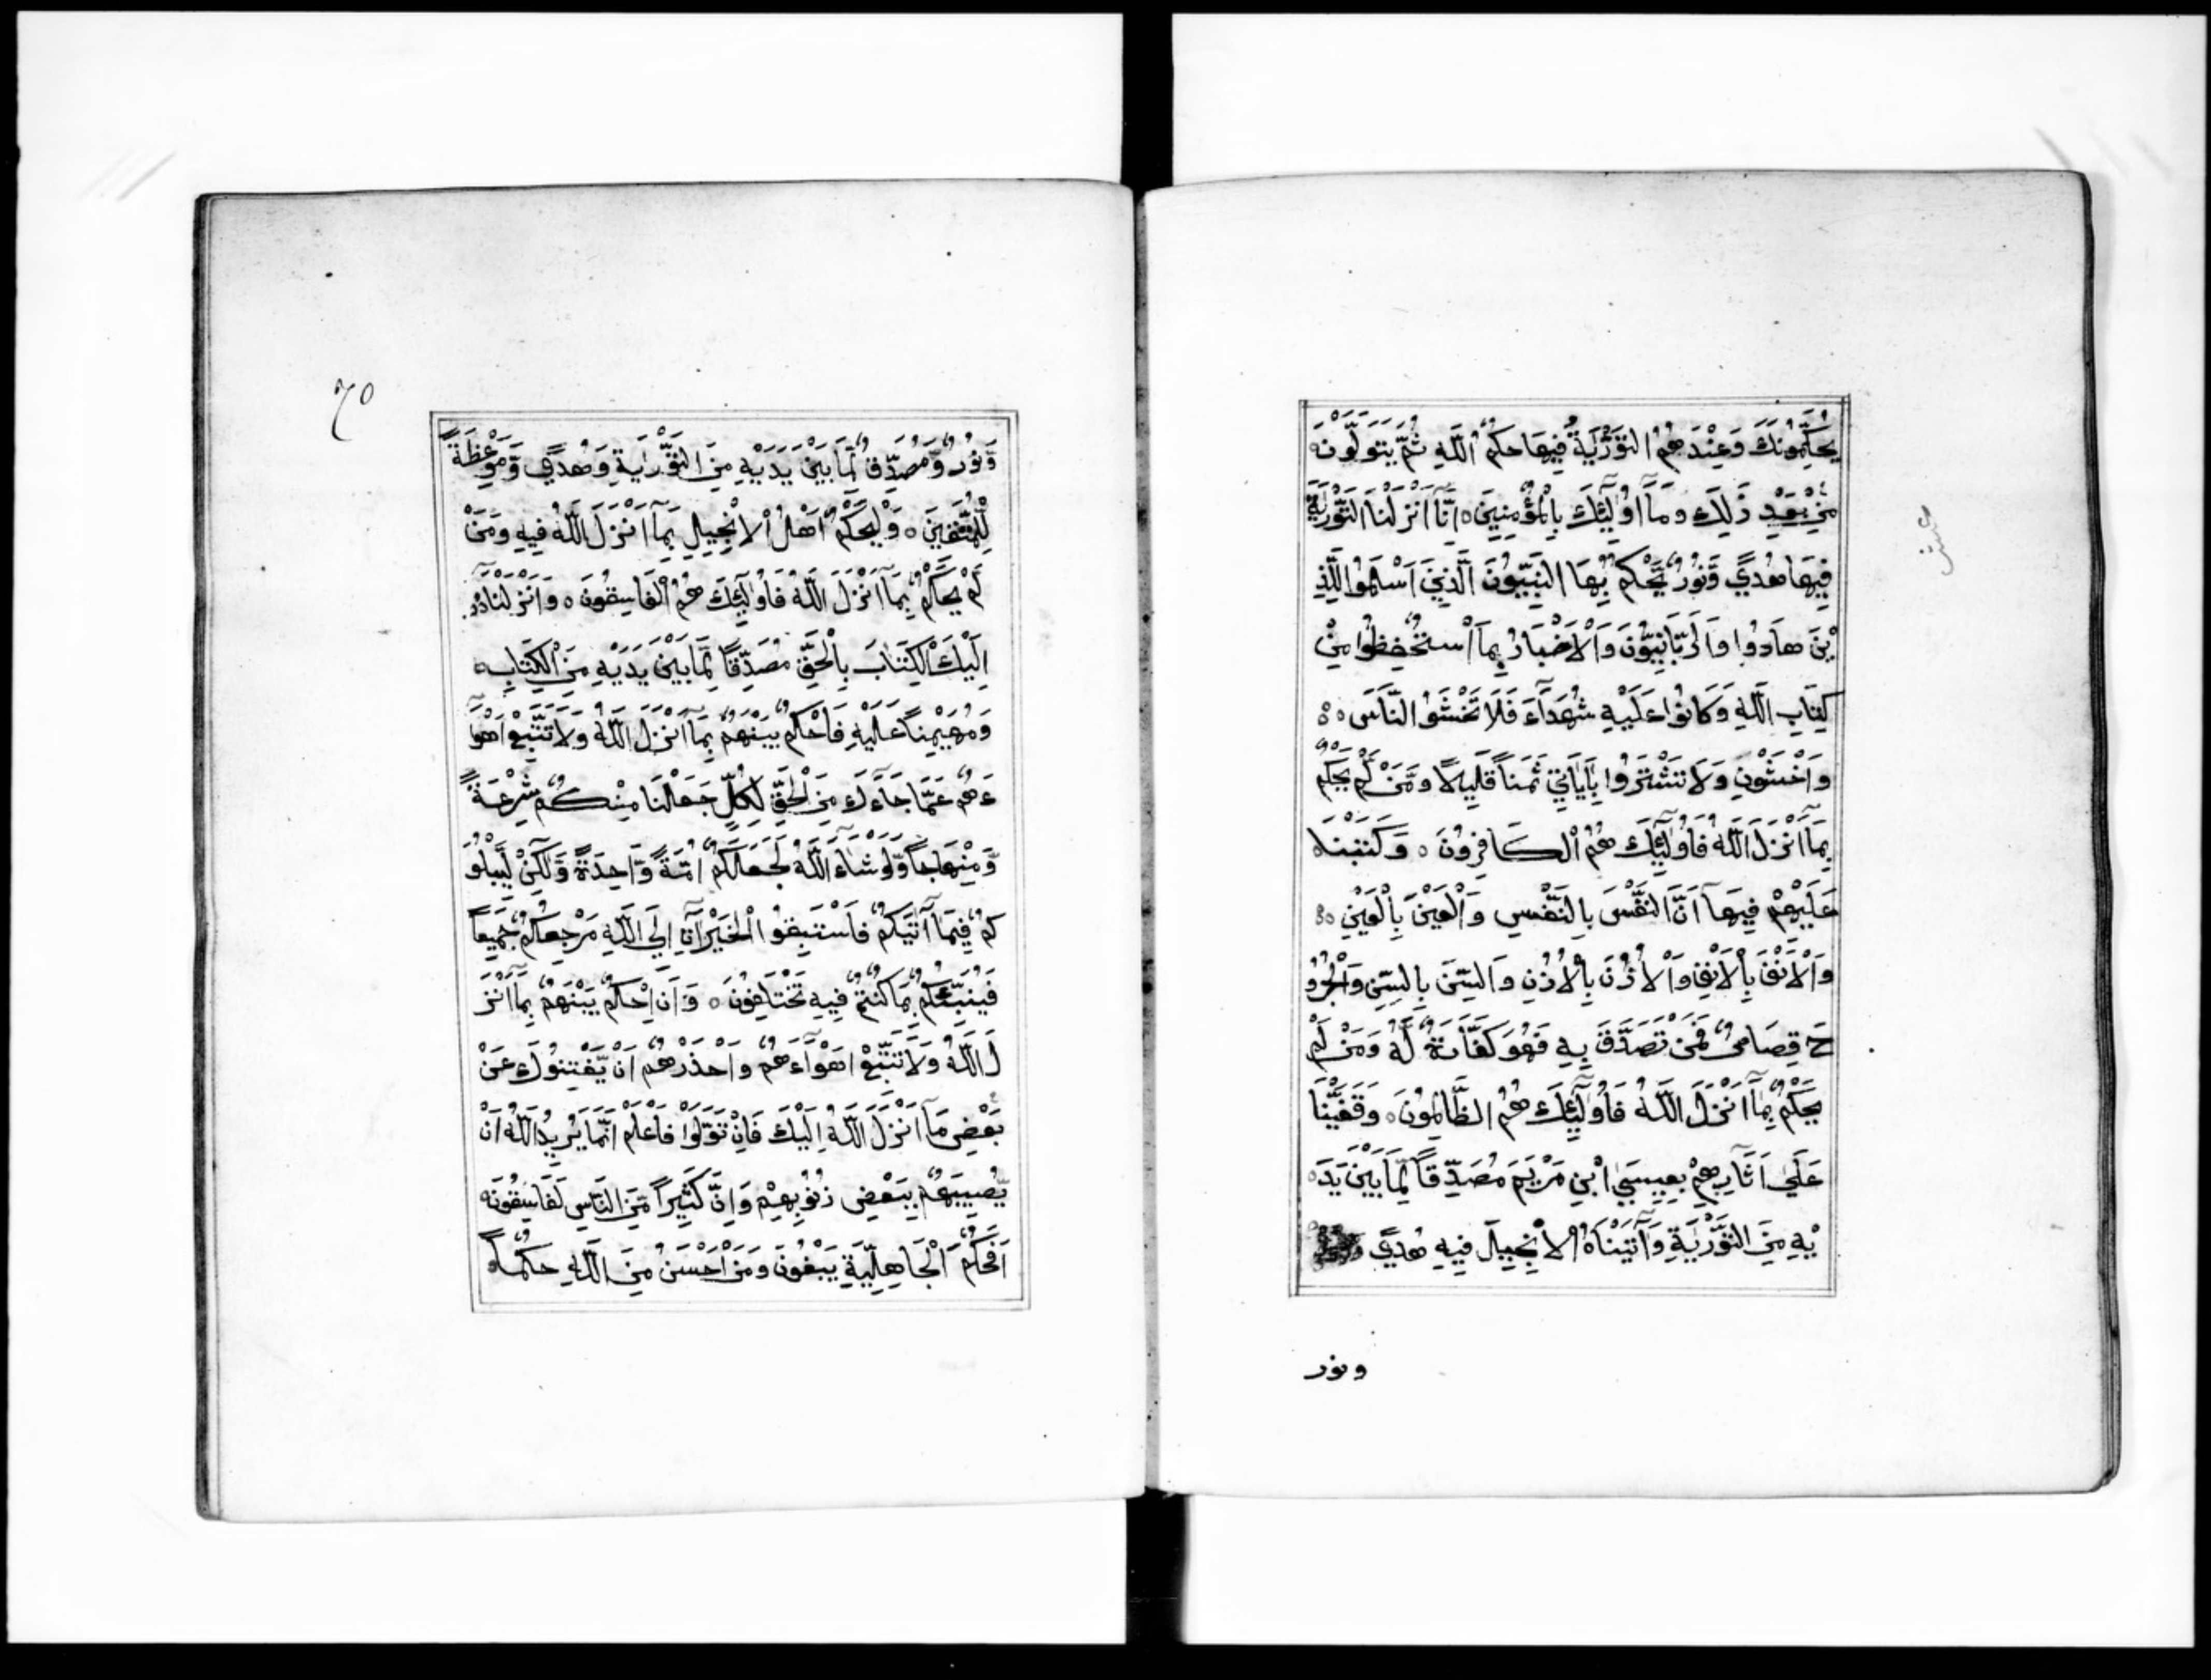 يُحَكِّمُونَكَ وَعِنْدَهُمُ التَّوْرٰيةُ فِيهَا حُكْمُ اللَّهِ ثُمَّ يَتَوَلَّوْنَ
مِنْ بَعْدِ ذٰلِكَ وَمَآ اُولٰٓئِكَ بِالْمُؤْمِنِينَ ۝ اِنَّآ اَنْزَلْنَا التَّوْرٰيةَ
فِيهَا هُدًي وَّنُورٌ يَّحْكُمُ بِهَا النَّبِيُّونَ الَّذِينَ اَسْلَمُوا لِلَّذِ
يْنَ هَادُوا وَالرَّبَّانِيُّونَ وَالْاَحْبَارُ بِمَا اسْتُحْفِظُوا مِنْ
كِتَابِ اللَّهِ وَكَانُوا عَلَيْهِ شُهَدَآءَ فَلَا تَخْشَوُا النَّاسَ
وَاخْشَوْنِ وَلَا تَشْتَرُوا بِاٰيَاتِي ثَمَنًا قَلِيلًا وَّمَنْ لَّمْ يَحْكُمْ
بِمَآ اَنْزَلَ اللَّهُ فَاُولٰٓئِكَ هُمُ الْكَافِرُونَ ۝ وَكَتَبْنَا
عَلَيْهِمْ فِيهَآ اَنَّ النَّفْسَ بِالنَّفْسِ وَالْعَيْنَ بِالْعَيْنِ
وَالْاَنْفَ بِالْاَنْفِ وَالْاُذُنَ بِالْاُذُنِ وَالسِّنَّ بِالسِّنِّ وَالْجُرُو
حَ قِصَاصٌ فَمَنْ تَصَدَّقَ بِهِ فَهُوَ كَفَّارَةٌ لَّهُ وَمَنْ لَّمْ
يَحْكُمْ بِمَآ اَنْزَلَ اللَّهُ فَاُولٰٓئِكَ هُمُ الظَّالِمُونَ ۝ وَقَفَّيْنَا
عَلٰي اٰثَارِهِمْ بِعِيسَي ابْنِ مَرْيَمَ مُصَدِّقًا لِّمَا بَيْنَ يَدَ
يْهِ مِنَ التَّوْرٰيةِ وَاٰتَيْنَاهُ الْاِنْجِيلَ فِيهِ هُدًي
ونور
٦٥
وَّنُورٌ وَّمُصَدِّقًا لِّمَا بَيْنَ يَدَيْهِ مِنَ التَّوْرٰيةِ وَهُدًي وَّمَوْعِظَةً
لِّلْمُتَّقِينَ ۝ وَلْيَحْكُمْ اَهْلُ الْاِنْجِيلِ بِمَآ اَنْزَلَ اللَّهُ فِيهِ وَمَنْ
لَّمْ يَحْكُمْ بِمَآ اَنْزَلَ اللَّهُ فَاُولٰٓئِكَ هُمُ الْفَاسِقُونَ ۝ وَاَنْزَلْنَآ
اِلَيْكَ الْكِتَابَ بِالْحَقِّ مُصَدِّقًا لِّمَا بَيْنَ يَدَيْهِ مِنَ الْكِتَابِ
وَمُهَيْمِنًا عَلَيْهِ فَاحْكُمْ بَيْنَهُمْ بِمَآ اَنْزَلَ اللَّهُ وَلَا تَتَّبِعْ اَهْوَآ
ءَهُمْ عَمَّا جَآءَكَ مِنَ الْحَقِّ لِكُلٍّ جَعَلْنَا مِنْكُمْ شِرْعَةً
وَّمِنْهَاجًا وَّلَوْ شَآءَ اللَّهُ لَجَعَلَكُمْ اُمَّةً وَّاحِدَةً وَّلٰكِنْ لِّيَبْلُوَ
كُمْ فِيمَآ اٰتٰيكُمْ فَاسْتَبِقُوا الْخَيْرَاتِ اِلَي اللَّهِ مَرْجِعُكُمْ جَمِيعًا
فَيُنَبِّئُكُمْ بِمَا كُنْتُمْ فِيهِ تَخْتَلِفُونَ ۝ وَاَنِ احْكُمْ بَيْنَهُمْ بِمَآ اَنْزَ
لَ اللَّهُ وَلَا تَتَّبِعْ اَهْوَآءَهُمْ وَاحْذَرْهُمْ اَنْ يَّفْتِنُوكَ عَنْ
بَعْضِ مَآ اَنْزَلَ اللَّهُ اِلَيْكَ فَاِنْ تَوَلَّوْا فَاعْلَمْ اَنَّمَا يُرِيدُ اللَّهُ اَنْ
يُّصِيبَهُمْ بِبَعْضِ ذُنُوبِهِمْ وَاِنَّ كَثِيرًا مِّنَ النَّاسِ لَفَاسِقُونَ
اَفَحُكْمَ الْجَاهِلِيَّةِ يَبْغُونَ وَمَنْ اَحْسَنُ مِنَ اللَّهِ حُكْمًا